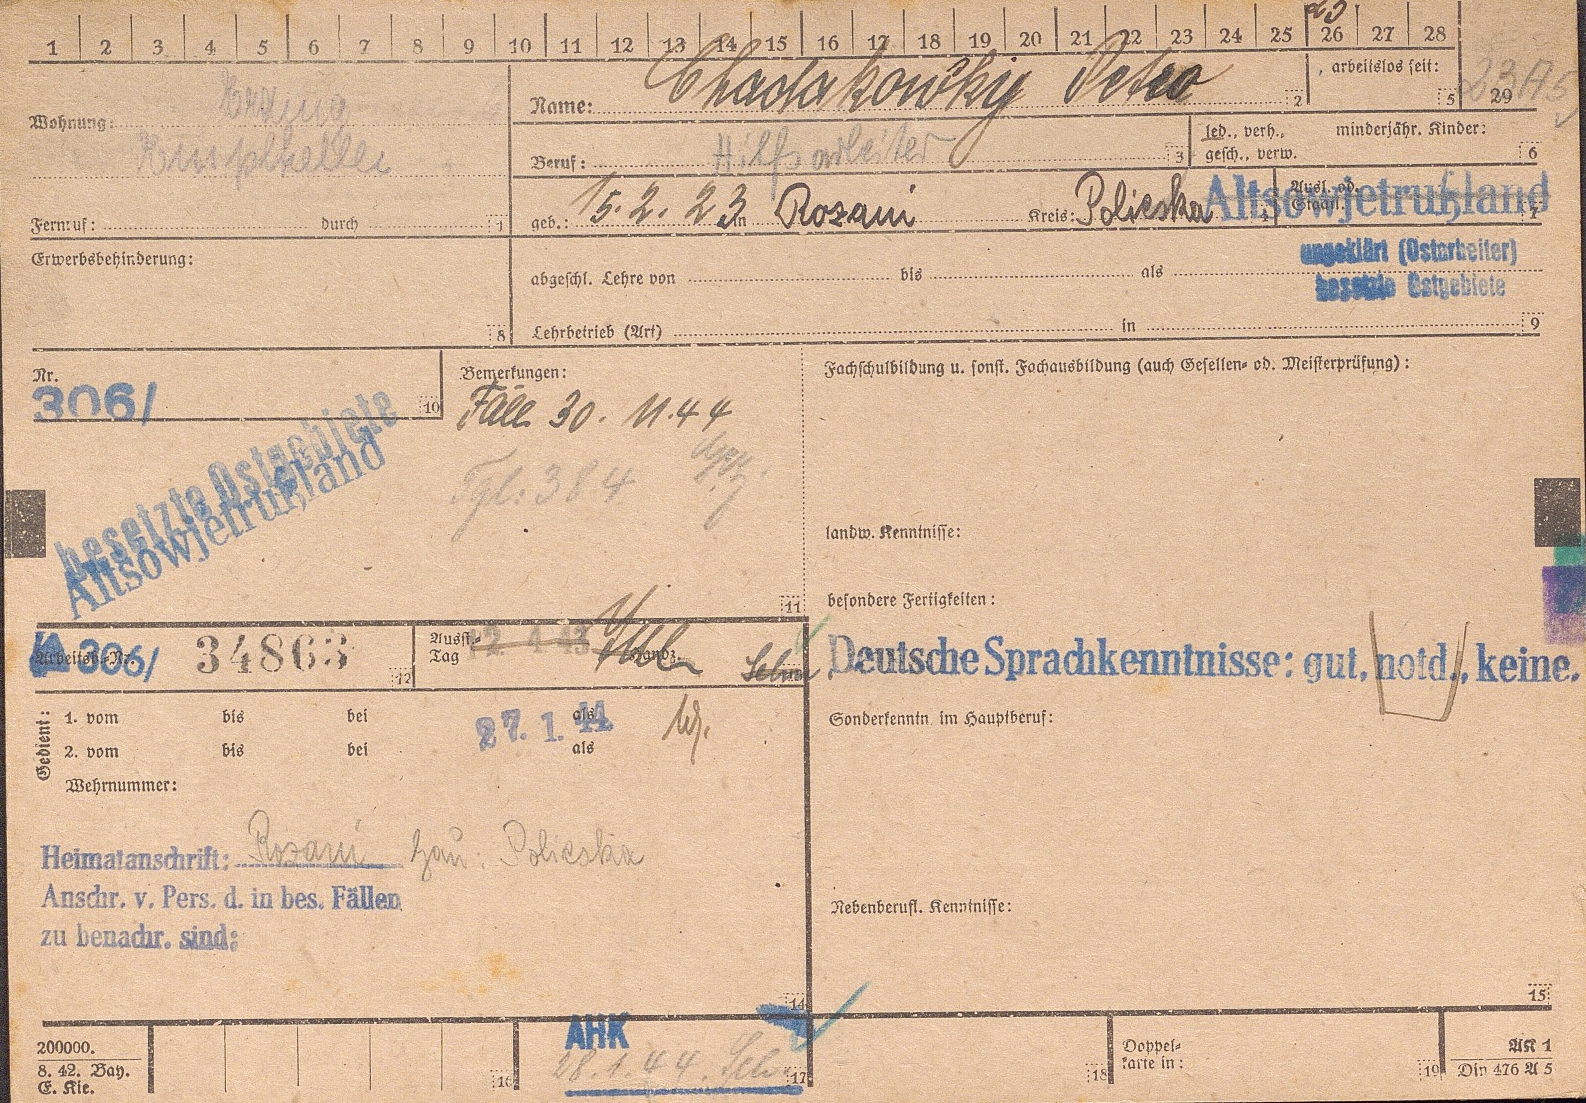 1 2 3 4 5 6 7 8 9 10 11 12 13 14 15 16 17 18 19 20 21 22 23 24 25 26 27 28 29
Wohnung: Erding
Name: Chadakowskij Petro 2
, arbeitslos seit: 5
Beruf: Hilfsarbeiter 3
led., verh., minderjähr. Kinder:
gesch., verw. 6
Fernruf: durch 1
geb.: 15.2.23 in Rozani Kreis: Policska 4
Ausl. od. Staatl. 7
Altsowjetrußland
ungeklärt (Ostarbeiter)
besetzte Ostgebiete
Erwerbsbehinderung: 8
abgeschl. Lehre von bis als
Lehrbetrieb (Art) in 9
Nr. 306/ 10
besetzte Ostgebiete
Altsowjetrußland
Bemerkungen:
Fäll 30. 11.44
Tgl: 384
11
Fachschulbildung u. sonst. Fachausbildung (auch Gesellen- od. Meisterprüfung):
landw. Kenntnisse:
besondere Fertigkeiten:
Deutsche Sprachkenntnisse: gut, notd., keine.
Sonderkenntn. im Hauptberuf:
Nebenberufl. Kenntnisse:
15
Arbeitsb.-Nr. A 306/ 34863 12
Ausst.-Tag 12 4 43 Handz.
Gedient:
1. vom bis bei als
27. 1. 44
2. vom bis bei als
Wehrnummer:
Heimatanschrift: Rozani Policska
Anschr. v. Pers. d. in bes. Fällen
zu benachr. sind:
14
200000.
8. 42. Bay.
E. Kie.
16
AHK
28.1.44. 17
18
Doppel-
karte in: 19
AK 1
Din 476 A 5